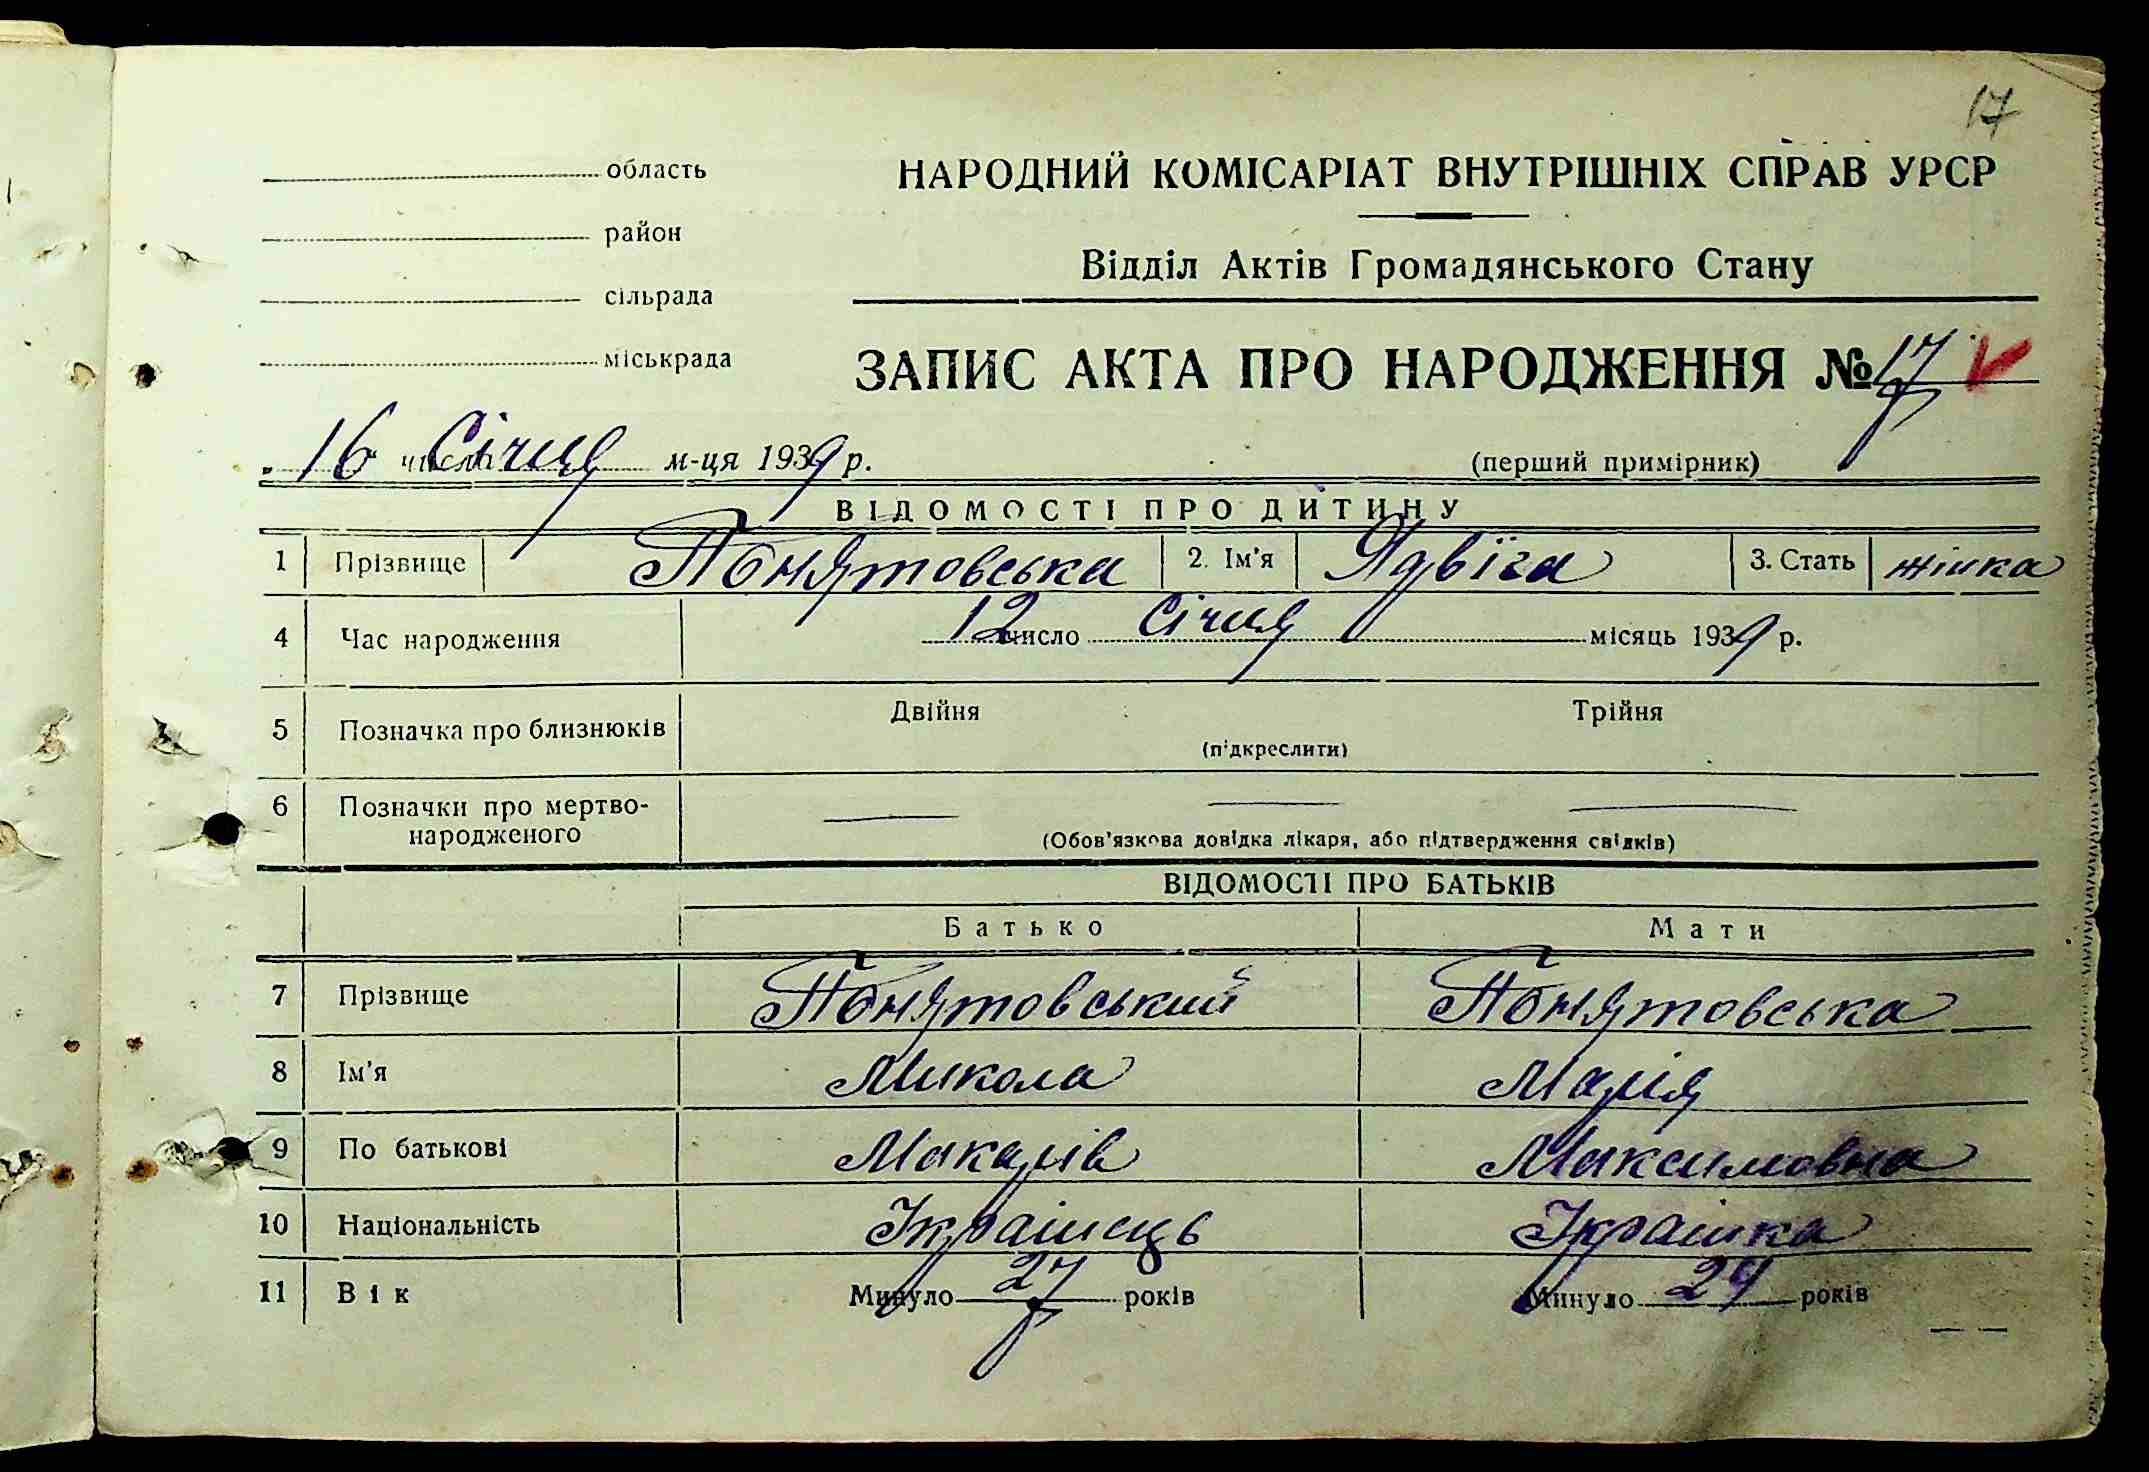 17
область
район
сільрада
міськрада
НАРОДНИЙ КОМІСАРІАТ ВНУТРІШНІХ СПРАВ УРСР
Відділ Актів Громадянського Стану
ЗАПИС АКТА ПРО НАРОДЖЕННЯ № 17
16 числа Січня м-ця 1939 р.
(перший примірник)
ВІДОМОСТІ ПРО ДИТИНУ
1 Прізвище Понятовська 2. Ім'я Ядвіга 3. Стать жінка
4 Час народження 12 число Січня місяць 1939 р.
5 Позначка про близнюків Двійня Трійня
(підкреслити)
6 Позначки про мертво-
народженого
(Обов'язкова довідка лікаря, або підтвердження свідків)
ВІДОМОСТІ ПРО БАТЬКІВ
Батько Мати
7 Прізвище Понятовський Понятовська
8 Ім'я Микола Марія
9 По батькові Макарів Максимовна
10 Національність Українець Українка
11 Вік Минуло 27 років Минуло 29 років